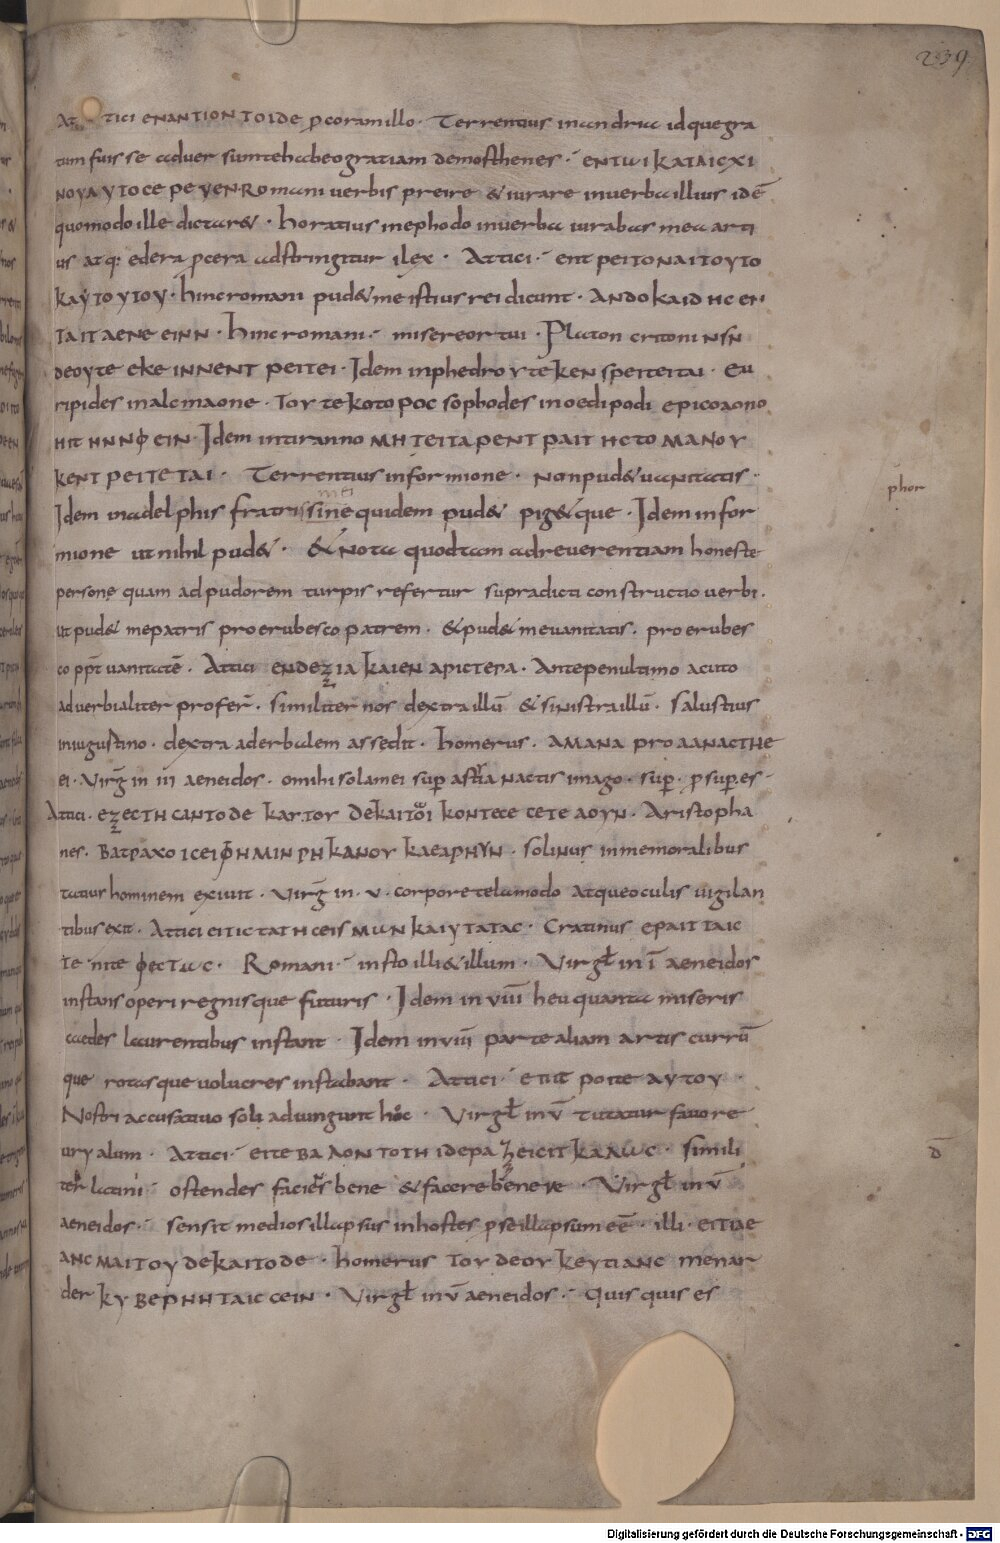 239
Attici ENANTION TOIDE pcoramillo. Terrentius inandria idquegra
tum fuisse aduer sumtehabeogratiam demosthenes. ENTωI KATAICXI
NOYAYTOCE PEYEN Romani uerbis preire & iurare inuerba illius idē
quomodo ille dictar&. horatius inephodo inuerba iurabas mea arti
us atq: edera pcera adstringitur ilex. Attici. ENT PEITONAITOYTO
KAYTOYTOY. hincromani pud& me istius rei dicunt. ANDOKAID HC EN
TAITAENE EINN. hincromani. misereortui. Platon critoni NSN
DEOYTE EKE INNENT PEITEI. Idem inphedro YTEKEN SPEITEITAI. Eu
ripides inalcmaone. TOY TEKOTOPOC sophodes inoedipodi EPICOAONO
HIT HNNΦEIN. Idem intiranno MHTEITAPENT PAIT HCTO MANOY
KENT PEITETAI. Terrentius informione. nonpud& uanitatis.
phor
Idem inadelphis fratris sinequidem pud& pig&que. Idem infor
mione ut nihil pud&. & Nota quodtam adreuerentiam honeste
persone quam ad pudorem turpis refertur supradicti constructio uerbi.
ut pud& mepatris proerubesco patrem. & pud& meuanitatis. pro erubes
co ppt uanitatē. Attici ENDEZIA KAIEN APICTEPA. Antepenultimo acuto
aduerbialiter profer̄. similiter nos dextra illū & sinistra illū. Salustius
iniugustino. dextra aderbalem assedit. homerus. AMANA PRO AANACTHE
ei. Virḡ in iii aeneidos. omihi solamei sup astia nactis imago. sup. p sup es.
Attici. EZECTH CANTODE KARTOY DEKAITOI KONTECE CETE AOYN. Aristopha
nes. BATPAXO ICEIΦHMIN PHKANOY KAEAPHYN. solinus inmemoralibus
tatiushominem exiuit. Virḡ in. v. corpore tela modo atqueoculis uigilan
tibus exit. Attici EITIC TATHCEIS MUN KAIYTATAC. Cratinus EPAITTAIC
TE NITE ΦECTωC. Romani. insto illi & illum. Virgł in ī aeneidos
instans operi regnisque futuris. Idem in viii heu quanta miseris
caedes laurentibus instant. Idem inviii parte aliam artis currū
que rotasque uolucres instabant. Attici. ETIT POITE AYTOY.
Nostri accusatiuo soli adiungunt hoc. Virgł inv̄ tutatur fauore
uryalum. Attici. EITE BAΛON TOTH IDEPA ZEICIT KAΛωC. simili
D̄
ter latini. ostendes facies bene & facere bene re. Virgł in v̄
aeneidos. sensit medios illapsus inhostes pse illapsum eē. illi. EITIAE
ANC MAITOY DEKAITODE. homerus TOY DEOY KEYTIANC menan
der KYBEPNHTAIC CEIN. Virgł inv̄ aeneidos. Quis quis es
Digitalisierung gefördert durch die Deutsche Forschungsgemeinschaft - DFG